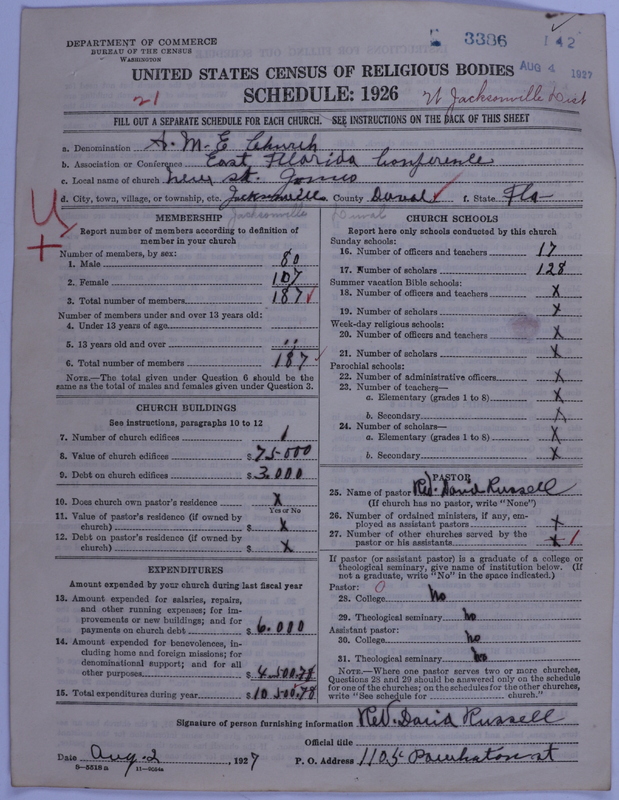 DEPARTMENT OF COMMERCE
BUREAU OF THE CENSUS
WASHINGTON
3386 142
AUG 4 1927
UNITED STATES CENSUS OF RELIGIOUS BODIES
21 SCHEDULE: 1926 Jacksonville Dist
FILL OUT A SEPARATE SCHEDULE FOR EACH CHURCH. SEE INSTRUCTIONS ON THE BACK OF THIS SHEET
a. Denomination A. M. E Church
b. Association or Conference East Florida Conference
c. Local name of church New St.
d. City, town, village, or township, etc. Jacksonville County Duval f. State Fla
Jacksonville Duval
MEMBERSHIP
Report number of members according to definition of
member in your church
Number of members, by sex:
1. Male 80
2. Female 107
3. Total number of members 187
Number of members under and over 13 years old:
4. Under 13 years of age
5. 13 years old and over ,,
6. Total number of members 187
NOTE.—The total given under Question 6 should be
same as the total of males and females given under Question 3.
CHURCH BUILDINGS
See instructions, paragraphs 10 to 12
7. Number of church edifices 1
8. Value of church edifices $ 75000
9. Debt on church edifices $ 3.000
10. Does church own pastor's residence X
Yes or No
11. Value of pastor's residence (if owned by
church) $ X
12. Debt on pastor's residence (if owned by
church) $ X
EXPENDITURES
Amount expended by your church during last fiscal year
13. Amount expended for salaries, repairs,
and other running expenses; for im-
provements or new buildings; and for
payments on church debt $ 6.000
14. Amount expended for benevolences, in-
cluding home and foreign missions; for
denominational support; and for all
other purposes $ 4.500.78
15. Total expenditures during year $ 10.500.78
CHURCH SCHOOLS
Report here only schools conducted by this church
Sunday schools:
16. Number of officers and teachers 17
17. Number of scholars 128
Summer vacation Bible schools:
18. Number of officers and teachers X
19. Number of scholars X
Week-day religious schools:
20. Number of officers and teachers X
21. Number of scholars X
Parochial schools:
22. Number of administrative officers X
23. Number of teachers—
a. Elementary (grades 1 to 8) X
b. Secondary X
24. Number of scholars—
a. Elementary (grades 1 to 8) X
b. Secondary X
PASTOR
25. Name of pastor Rev. David Russell
(If church has no pastor, write "None")
26. Number of ordained ministers, if any, em-
ployed as assistant pastors X
27. Number of other churches served by the
pastor or his assistants X 1
If pastor (or assistant pastor) is a graduate of a college or
theological seminary, give name of institution below. (If
not a graduate, write "No" in the space indicated.)
Pastor: 0
28. College No
29. Theological seminary No
Assistant pastor:
30. College No
31. Theological seminary No
NOTE.—Where one pastor serves two or more churches,
Questions 28 and 29 should be answered only on the schedule
for one of the churches; on the schedules for the other churches,
write "See schedule for church."
Signature of person furnishing information Rev. David Russell
Official title
Date Aug-2, 1927 P. O. Address 1105 Powhaton st
8-5218a 11-9024a